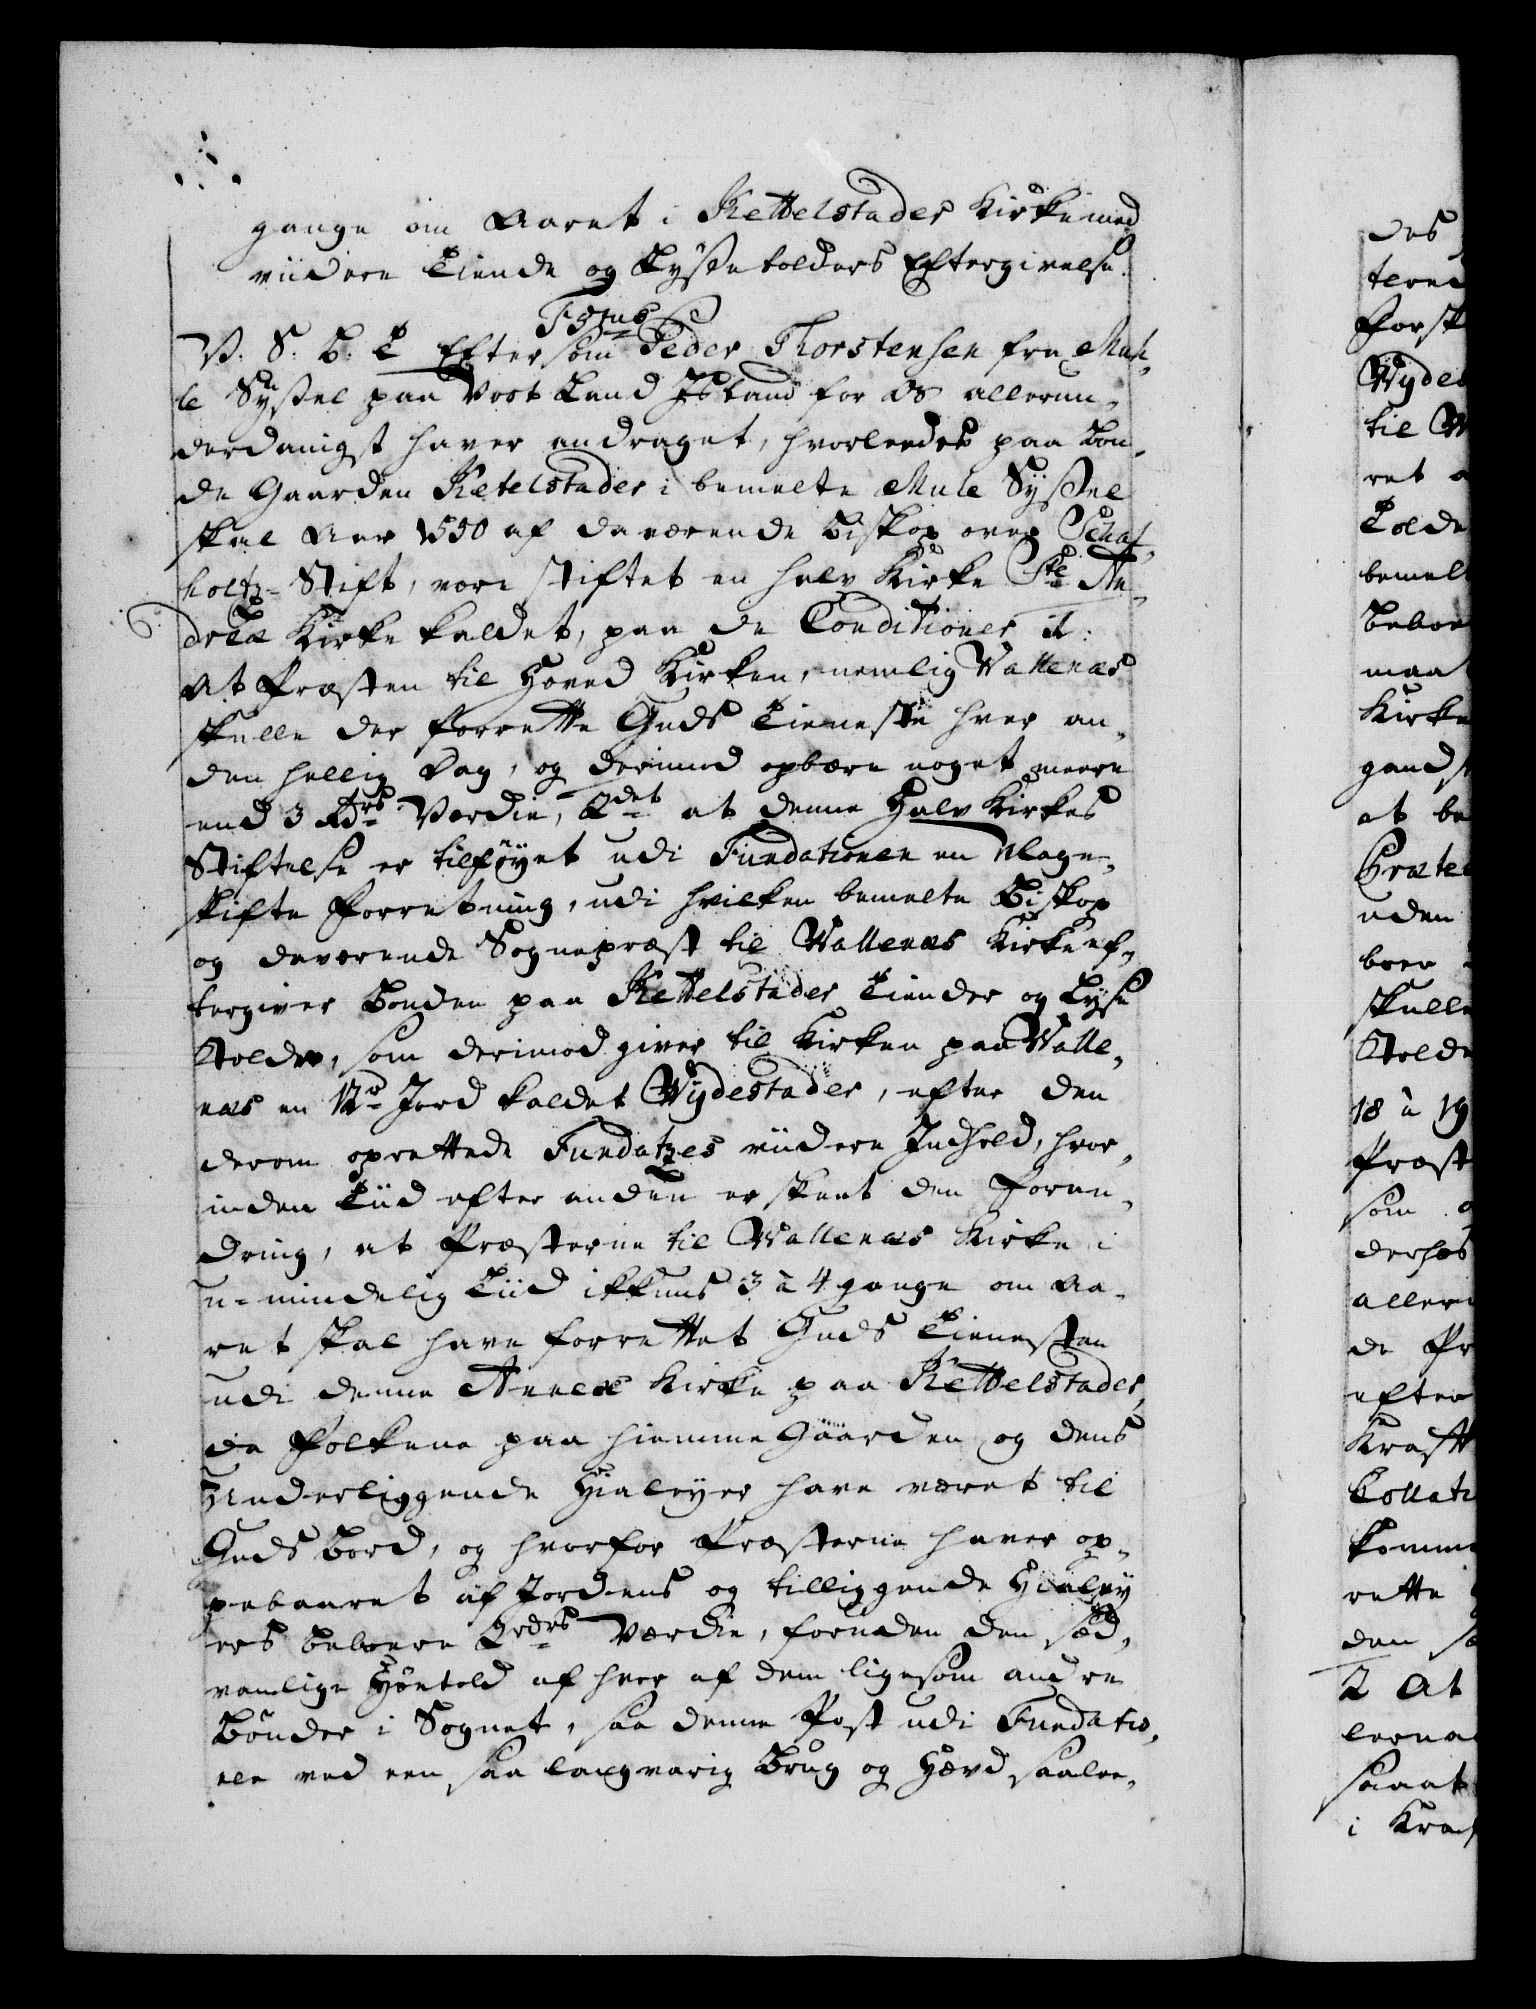 gange om Aaret i Kettelstader Kirke med
viidere Tiende og Lyssetolders Eftergivelse.
V. S. B. T Eftersom Peder Thorstensen fra Mu-
le Syssel paa Vort Land Island for Os allerun-
derdanigst haver andraget, hvorledes paa Bon-
de Gaarden Ketelstader i bemelte Mule Syssel
skal Aar 1550 af daværende Biskop over Schal-
holtz-Stift, være stiftet en halv Kirke Ste An-
dreæ Kirke kaldet, paa de Conditioner 1t:
At Præsten til Hoved Kirken, nemlig Vallenæs
skulle der forrette Guds Tieneste hver an-
den hellig Dag, og derimod opbære noget meere
end 3 Rdrs Værdie, 2det at denne Halv Kirkes
Stiftelse er tilføyet udi Fundationen en Mage-
skifte Forretning, udi hvilken bemelte Biskop
og daværende Sognepræst til Vallenæs Kirke ef-
tergiver Bonden paa Kettelstader Tiender og Lyse
Tolder, som derimod giver til Kirken paa Valle-
næs en Jord kaldet Wydestader, efter den
derom oprettede Fundatzes viidere Indhold, hvor-
inden Tiid efter anden er skeet den Foran-
dring, at Præsterne til Vallenæs Kirke i
u-mindelig Tiid ikkuns 3 à 4 gange om Aa-
ret skal have forrettet Guds Tienesten
udi denne Annex Kirke paa Kettelstader,
da Folkene paa hiemme Gaarden og dens
Underliggende Hialeyer have været til
Guds Bord, og hvorfor Præsterne haver op-
pebaaret af Jordens og tilliggende Hialey
ers Beboere 2 rdrs Værdie, foruden den sæd-
vanlige Høetold af hver af dem ligesom andre
Bønder i Sognet, saa denne Post udi Fundatio-
nen ved een saa langvarig Brug og Hævd saalee-
des
terne
Forsk
Wydes
til W
ret
Tolde
bemelt
Beboe
maa
Kirke
gands
at be
Præte
uden
boer
skulle
Tolde
18 à 19
Præst
som
derhos
aller
de Pr
efter
Kraft
Collati
komme
rette
den
2 At
saaat
i Kra